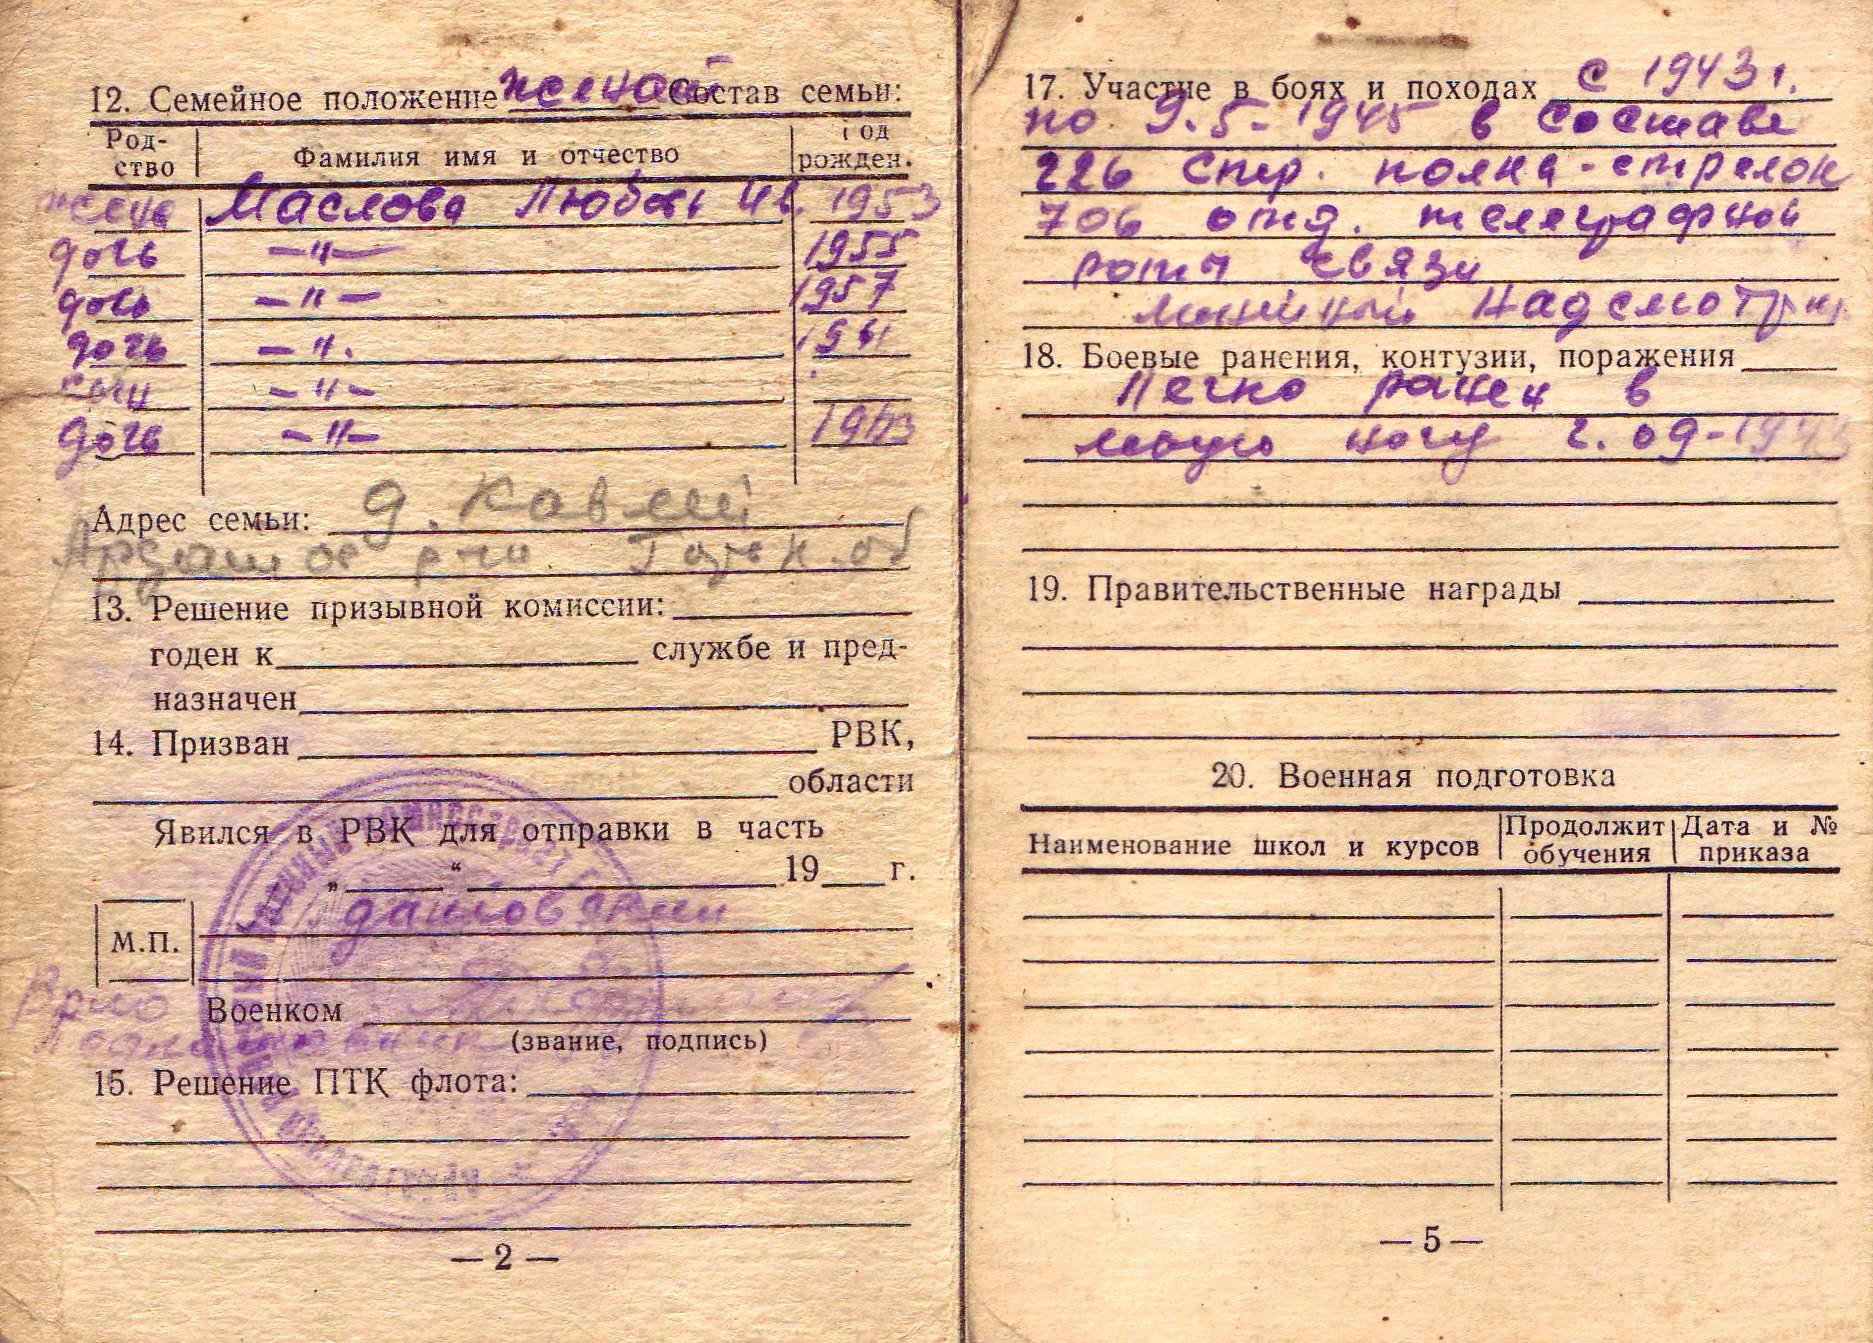 12. Семейное положение женат Состав семьи:
Род-
ство
Фамилия имя и отчество
Год
рожден.
жена Маслова Любовь Ив. 1953
дочь —"— 1955
дочь —"— 1957
дочь —". 1961
сын —"—
дочь —"—
Адрес семьи: д. Кавлей
13. Решение призывной комиссии:
годен к службе и пред-
назначен
14. Призван РВК,
области
Явился в РВК для отправки в часть
„ “ 19 г.
М.П.
Военком
(звание, подпись)
15. Решение ПТК флота:
— 2 —
17. Участие в боях и походах с 1943 г.
по 9.5-1945 в составе
226 стр. полка - стрелок
706 отд. телеграфной
роты связи
линейный надсмотрщик
18. Боевые ранения, контузии, поражения
Легко ранен в
левую ногу 2.09-1943
19. Правительственные награды
20. Военная подготовка
Наименование школ и курсов
Продолжит
обучения
Дата и №
приказа
— 5 —